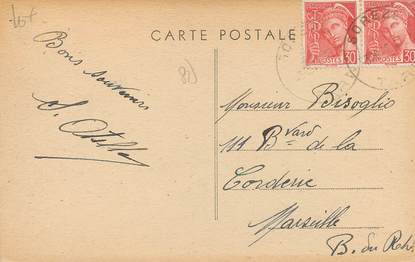 CARTE POSTALE
SOREZE
POSTES 30
POSTES 30
Bons souvenirs
Monsieur Bisoglio
111 Bvard de la
Corderie
Marseille
B. du Rh.